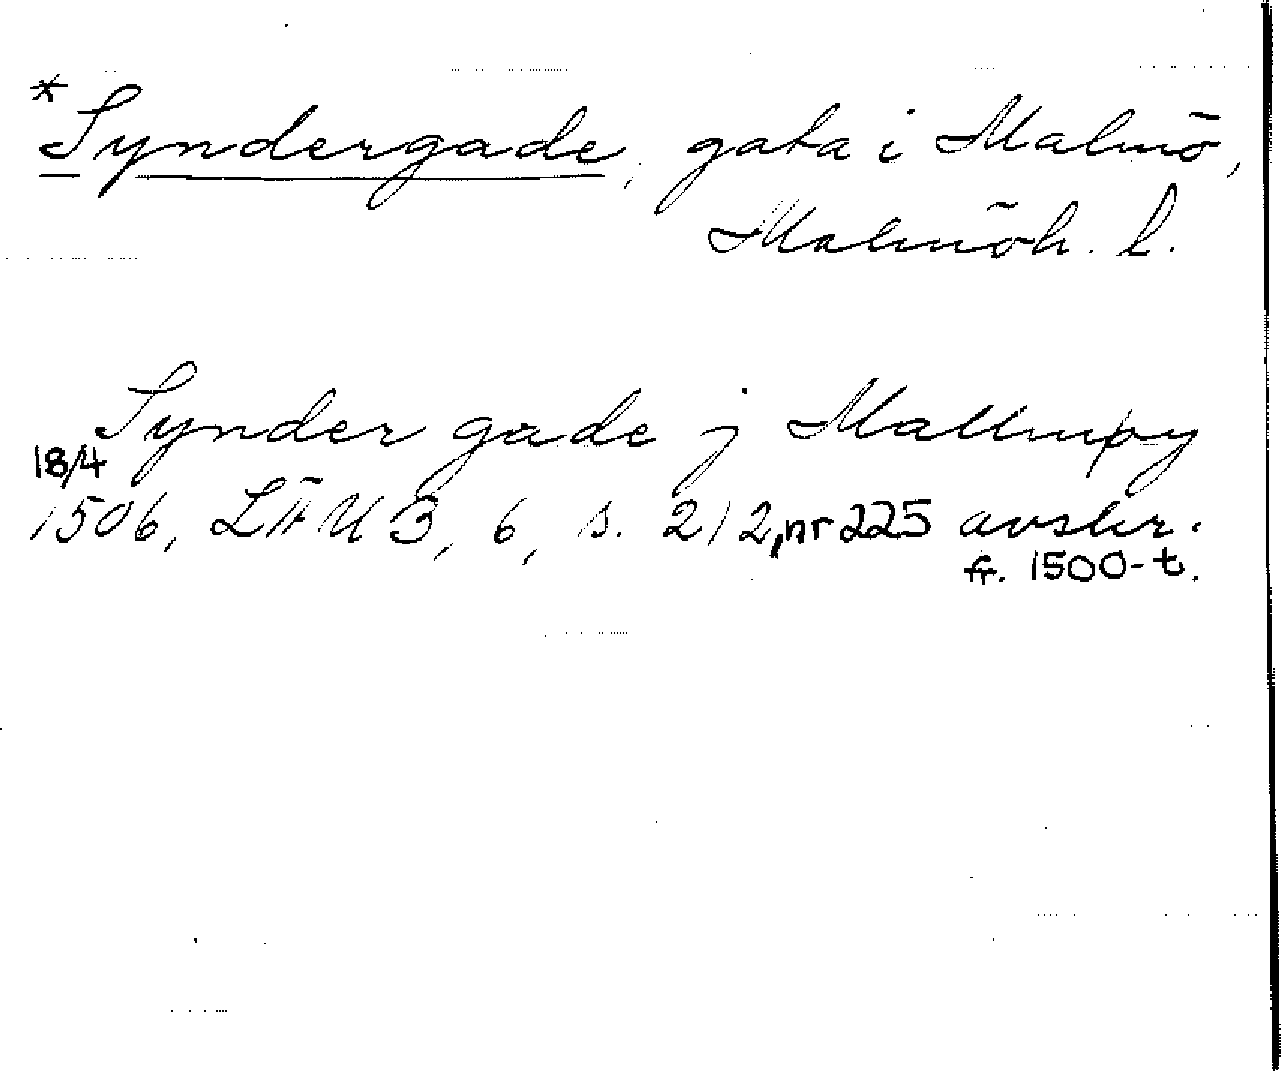 *Syndergade, gata i Malmö,
Malmöh. l.
Synder gade j Mallmøy
18/4
1506, LÄUB, 6, s. 212, nr 225 avskr.
fr. 1500-t.